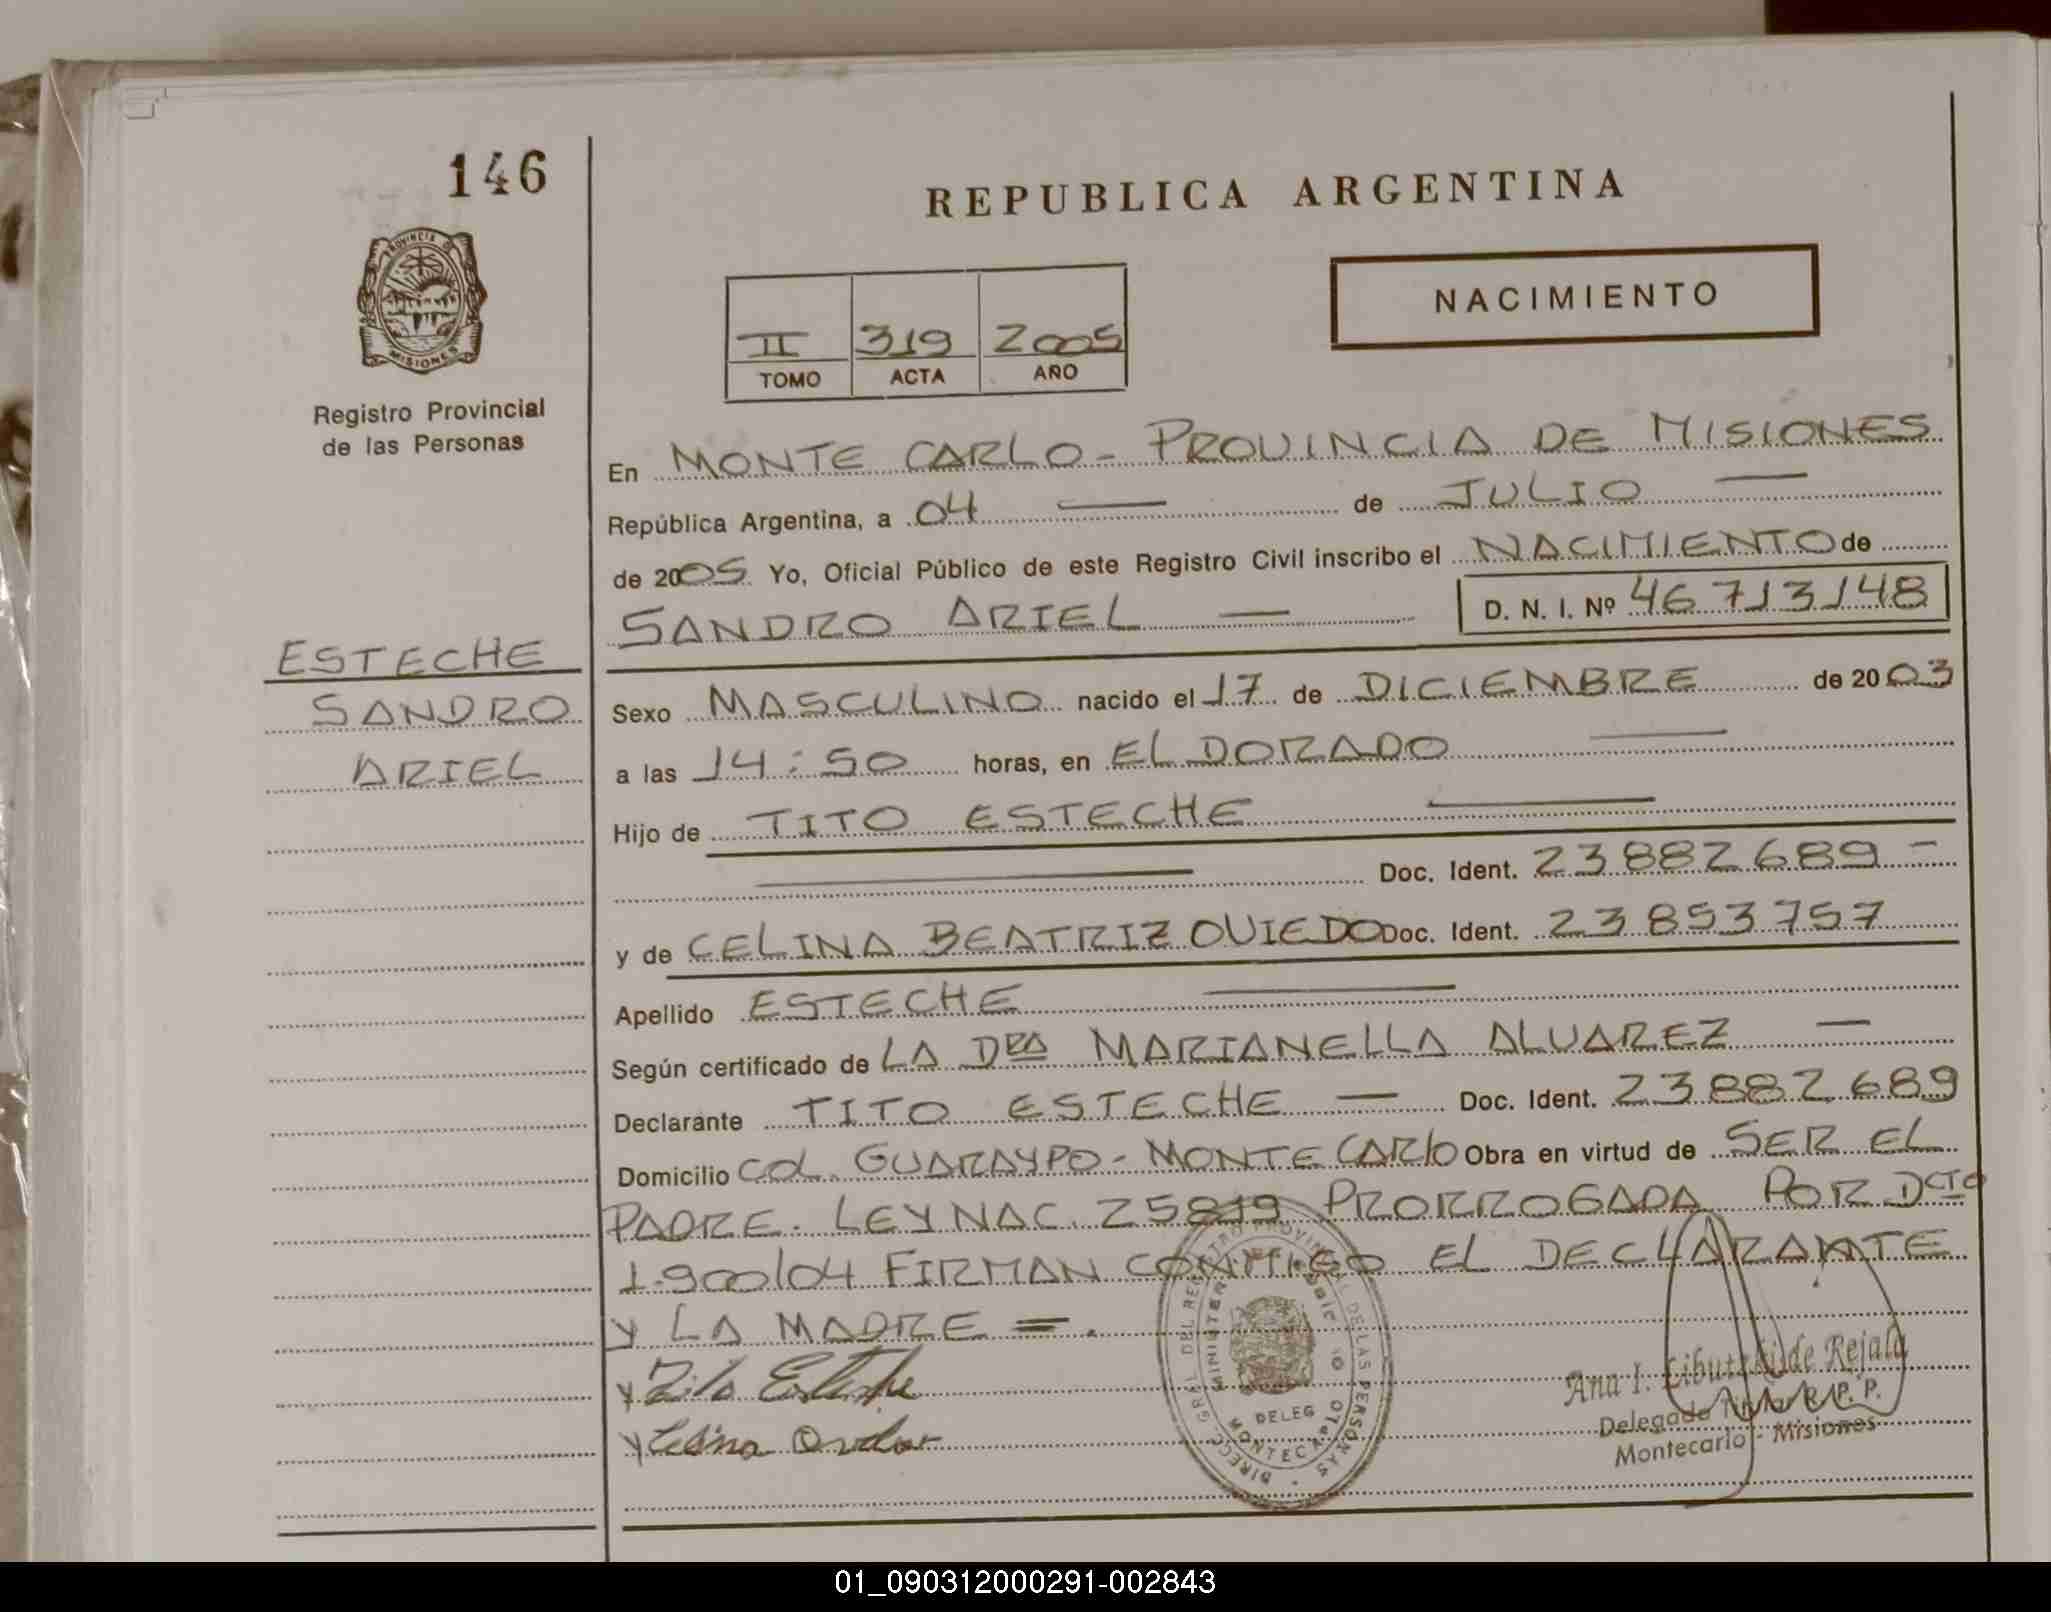 146
REPUBLICA ARGENTINA
PROVINCIA D
MISIONES
Registro Provincial
de las Personas
NACIMIENTO
II 319 2005
TOMO ACTA AÑO
En MONTE CARLO - PROVINCIA DE MISIONES
República Argentina, a 04 — de JULIO —
de 2005 Yo, Oficial Público de este Registro Civil inscribo el NACIMIENTO de
SANDRO ARIEL — D. N. I. Nº 46 713148
ESTECHE
SANDRO
ARIEL
Sexo MASCULINO nacido el 17 de DICIEMBRE de 2003
a las 14:50 horas, en ELDORADO —
Hijo de TITO ESTECHE —
— Doc. Ident. 23882689 -
y de CELINA BEATRIZ OVIEDO Doc. Ident. 23853757
Apellido ESTECHE —
Según certificado de LA DRA MARIANELLA ALVAREZ —
Declarante TITO ESTECHE — Doc. Ident. 23882689
Domicilio COL. GUARAYPO - MONTECARlO Obra en virtud de SER EL
PADRE. LEY NAC. 25819 PRORROGADA POR DCTO
1.900/04 FIRMAN CONMIGO EL DECLARANTE
Y LA MADRE =.
Tito Esteche
Celina Oviedo
DIRECC. GRAL. DEL REGISTRO PROVINCIAL DE LAS PERSONAS
DELEG
MONTECARLO
Ana I. de Rejala
Delegado R. P. P.
Montecarlo - Misiones
01_090312000291-002843